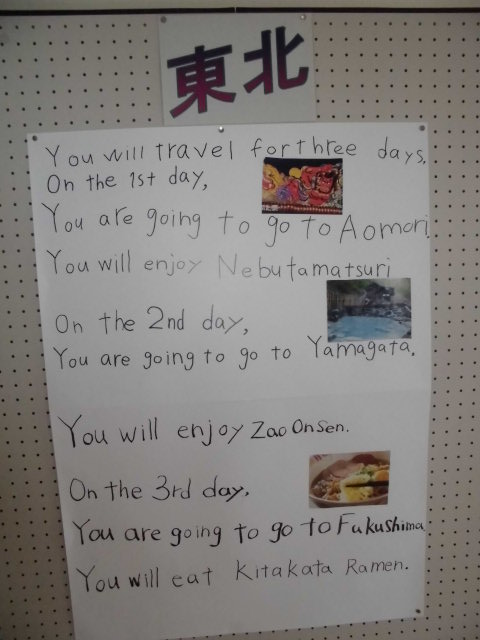 東北
You will travel for three days.
On the 1st day,
You are going to go to Aomori.
You will enjoy Nebutamatsuri
On the 2nd day,
You are going to go to Yamagata.
You will enjoy Zao Onsen.
On the 3rd day.
You are going to go to Fukushima
You will eat Kitakata Ramen.